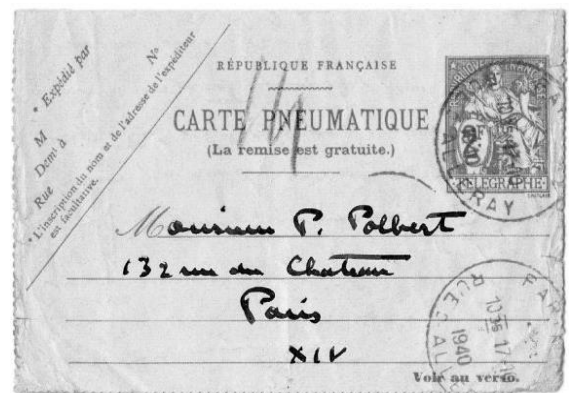 * Expédié par
N°
M
Demt à
Rue
* L'inscription du nom et de l'adresse de l'expéditeur
est facultative.
RÉPUBLIQUE FRANÇAISE
CARTE PNEUMATIQUE
(La remise est gratuite.)
TÉLÉGRAPHE
ALLERAY
Monsieur P. Polbert
132 rue du Chateau
Paris
XIV
1940
Voir au verso.